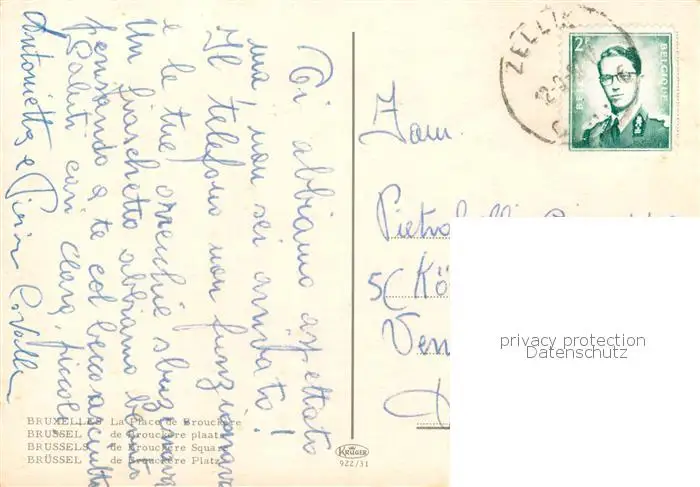 Ti abbiamo aspettato
ma, non sei arrivato!
Il telefono non funzionava
e le tue orecchie
Un fiaschetto abbiamo bevuto
pensando a te col becco asciutto
Saluti cari Clara, piccolo
Antonietta e Pierin
Fam.
5( Kö
Ven
ZELLIK
2
BELGIQUE
BRUXELLES La Place de Brouckère
BRUSSEL de Brouckère plaats
BRUSSELS de Brouckère Square
BRÜSSEL de Brouckère Platz
KRÜGER
922/31
privacy protection
Datenschutz